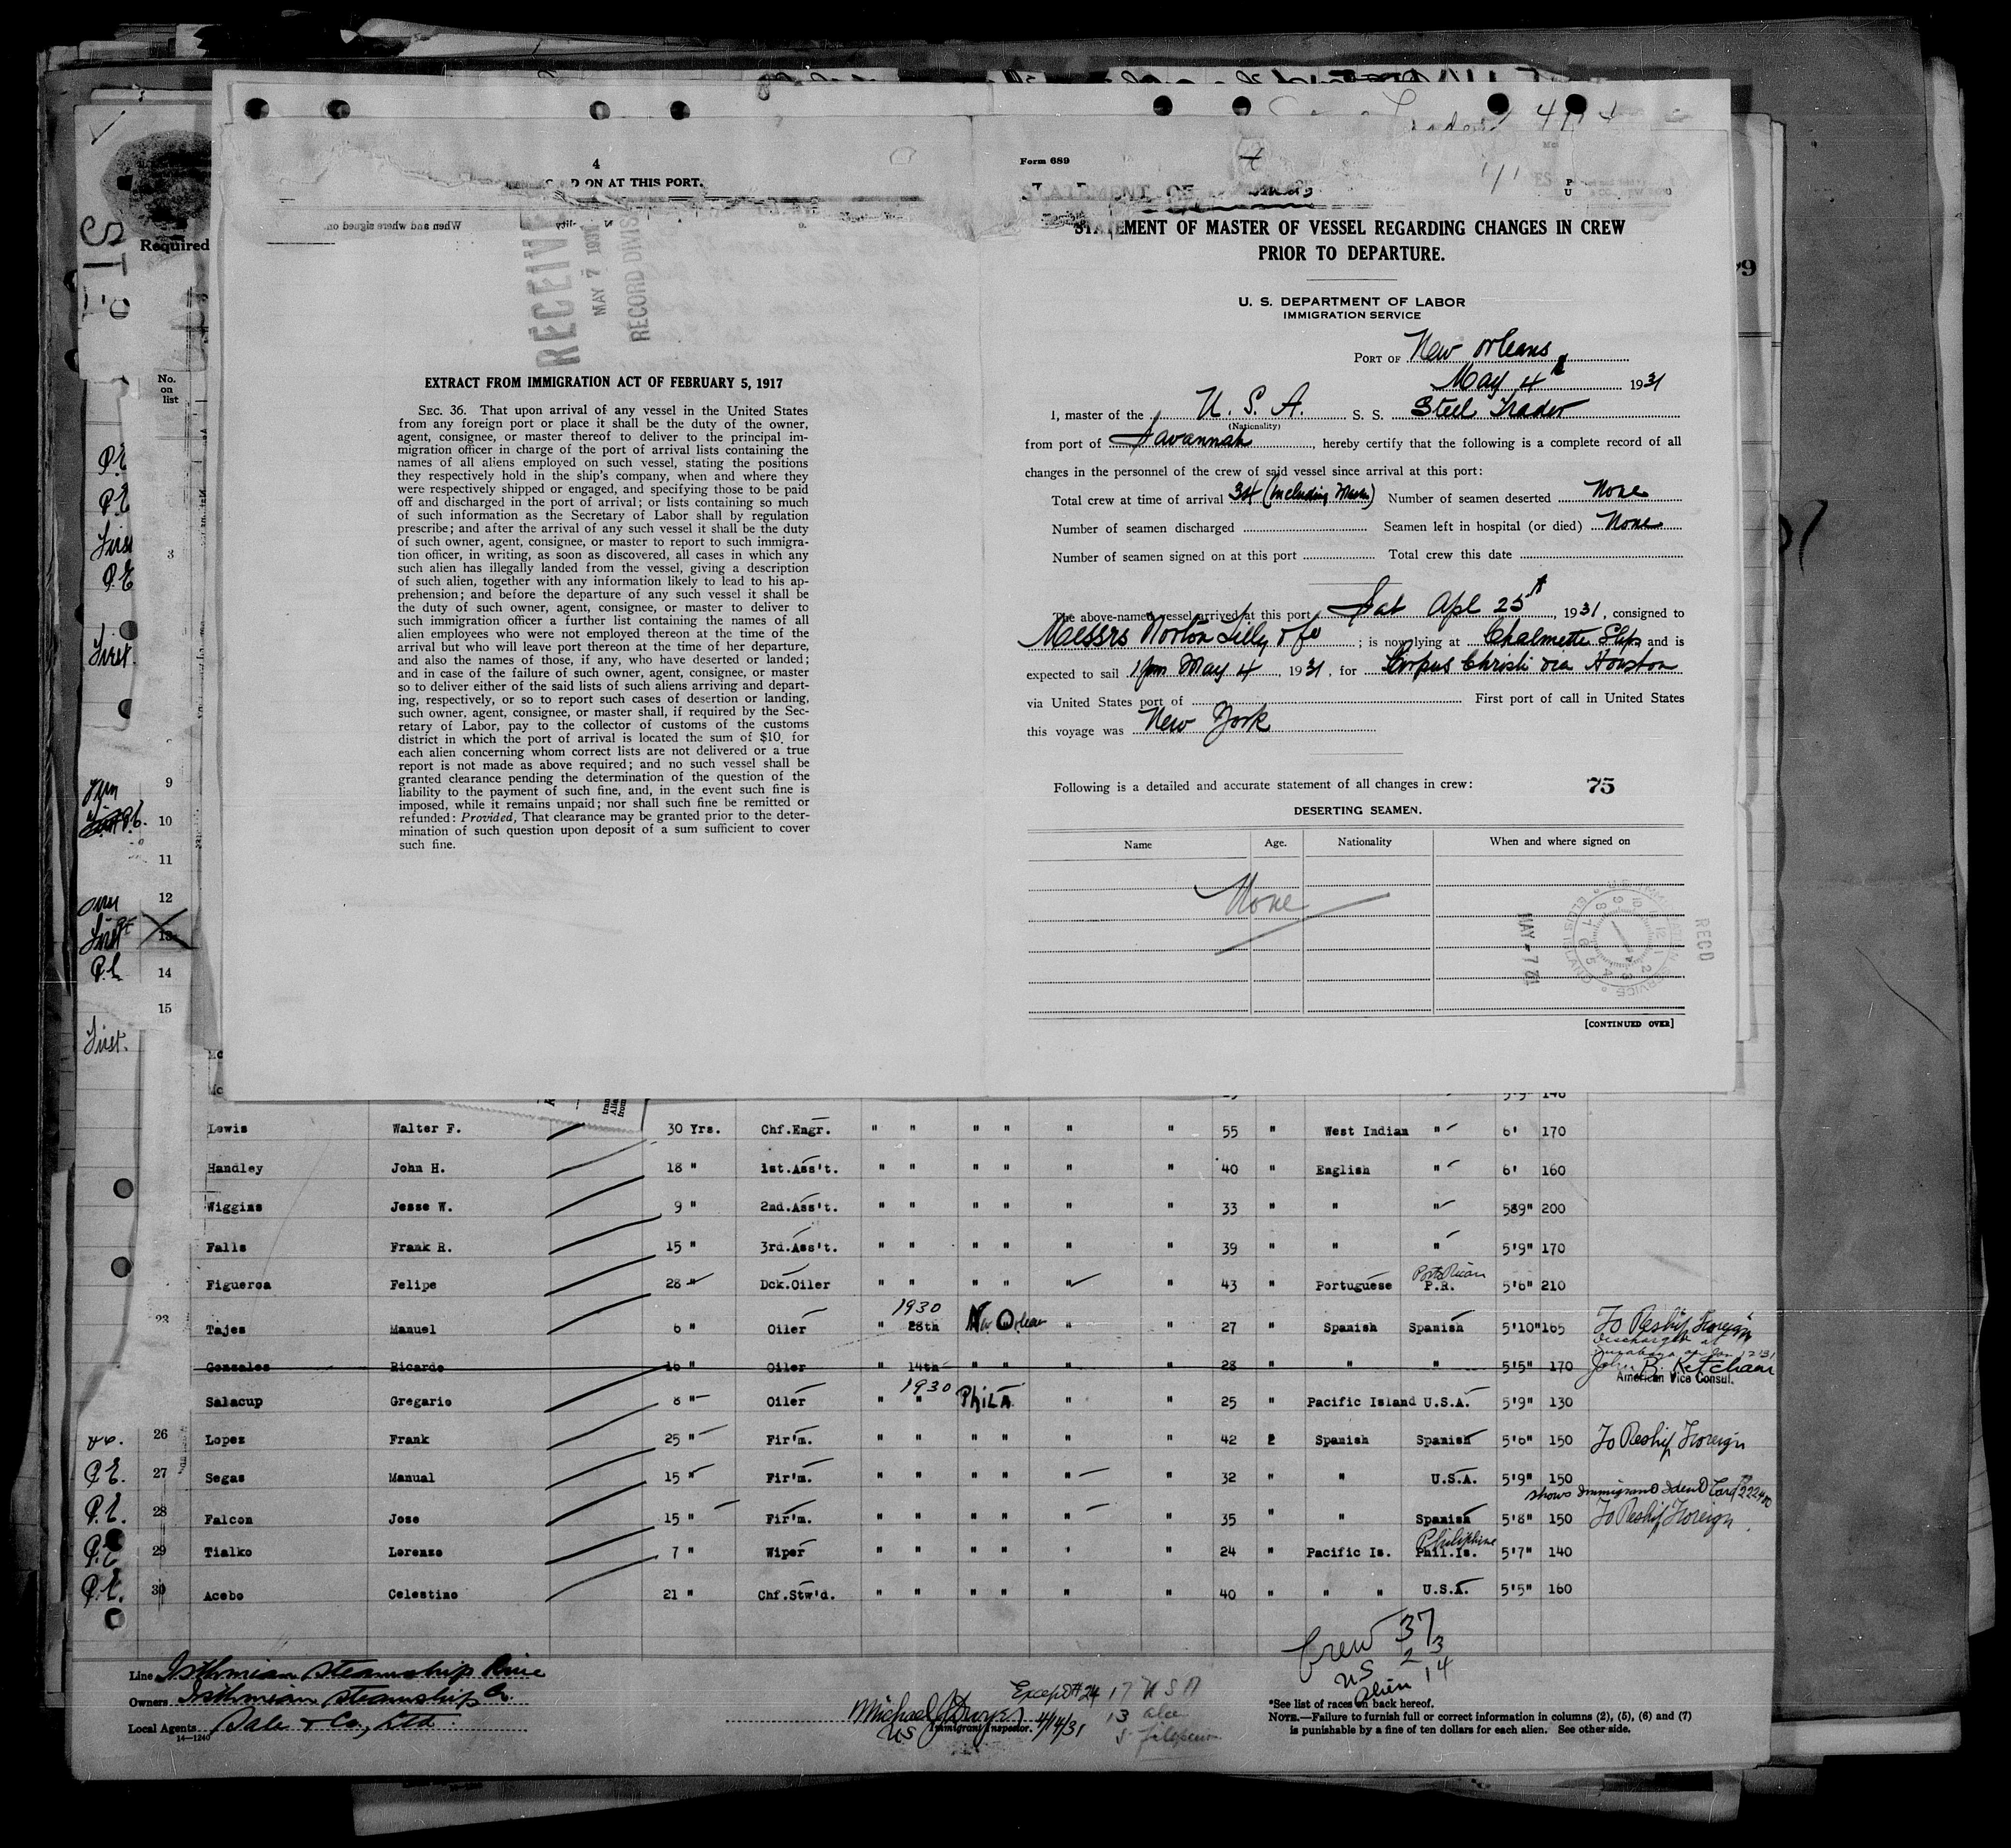 4
ON AT THIS PORT.
When and where signed on
RECEIVED
MAY 7 1931
RECORD DIVIS
EXTRACT FROM IMMIGRATION ACT OF FEBRUARY 5, 1917
SEC. 36. That upon arrival of any vessel in the United States
from any foreign port or place it shall be the duty of the owner,
agent, consignee, or master thereof to deliver to the principal im-
migration officer in charge of the port of arrival lists containing the
names of all aliens employed on such vessel, stating the positions
they respectively hold in the ship's company, when and where they
were respectively shipped or engaged, and specifying those to be paid
off and discharged in the port of arrival; or lists containing so much
of such information as the Secretary of Labor shall by regulation
prescribe; and after the arrival of any such vessel it shall be the duty
of such owner, agent, consignee, or master to report to such immigra-
tion officer, in writing, as soon as discovered, all cases in which any
such alien has illegally landed from the vessel, giving a description
of such alien, together with any information likely to lead to his ap-
prehension; and before the departure of any such vessel it shall be
the duty of such owner, agent, consignee, or master to deliver to
such immigration officer a further list containing the names of all
alien employees who were not employed thereon at the time of the
arrival but who will leave port thereon at the time of her departure,
and also the names of those, if any, who have deserted or landed;
and in case of the failure of such owner, agent, consignee, or master
so to deliver either of the said lists of such aliens arriving and depart-
ing, respectively, or so to report such cases of desertion or landing,
such owner, agent, consignee, or master shall, if required by the Sec-
retary of Labor, pay to the collector of customs of the customs
district in which the port of arrival is located the sum of $10 for
each alien concerning whom correct lists are not delivered or a true
report is not made as above required; and no such vessel shall be
granted clearance pending the determination of the question of the
liability to the payment of such fine, and, in the event such fine is
imposed, while it remains unpaid; nor shall such fine be remitted or
refunded: Provided, That clearance may be granted prior to the deter-
mination of such question upon deposit of a sum sufficient to cover
such fine.
Form 689
STATEMENT OF
STATEMENT OF MASTER OF VESSEL REGARDING CHANGES IN CREW
PRIOR TO DEPARTURE.
U. S. DEPARTMENT OF LABOR
IMMIGRATION SERVICE
PORT OF New Orleans
May 4th 1931
I, master of the U. S. A. S. S. Steel Trader
(Nationality)
from port of Savannah, hereby certify that the following is a complete record of all
changes in the personnel of the crew of said vessel since arrival at this port:
Total crew at time of arrival 34 (Including Master) Number of seamen deserted None
Number of seamen discharged Seamen left in hospital (or died) None
Number of seamen signed on at this port Total crew this date
The above-named vessel arrived at this port Sat Apl 25th, 1931, consigned to
Messrs Norton Lilly & Co; is now lying at Chalmette Slip and is
expected to sail 1 pm May 4, 1931, for Corpus Christi via Houston
via United States port of First port of call in United States
this voyage was New York
Following is a detailed and accurate statement of all changes in crew: 75
DESERTING SEAMEN.
Name Age. Nationality When and where signed on
None
MAY - 7 31
RECD
[CONTINUED OVER]
Required
No. on list
3
9
10
11
12
13
14
15
First
P.E.
Lewis Walter F. 30 Yrs. Chf.Engr. " " " " " " 55 " West Indian " 6' 170
Handley John H. 18 " 1st.Ass't. " " " " " " 40 " English " 6' 160
Wiggins Jesse W. 9 " 2nd.Ass't. " " " " " " 33 " " " 589" 200
Falls Frank R. 15 " 3rd.Ass't. " " " " " " 39 " " " 5'9" 170
Figueroa Felipe 28 " Dck.Oiler " " " " " " 43 " Portuguese Porto Rican P.R. 5'6" 210
23 Tajes Manuel 6 " Oiler " 1930 28th New Orlean " " 27 " Spanish Spanish 5'10" 165 To Reship Foreign
Gonzales Ricardo 16 " Oiler " 14th " " 28 " " " 5'5" 170 John B. Ketcham
American Vice Consul.
Salacup Gregario 8 " Oiler " 1930 " PHILA " " 25 " Pacific Island U.S.A. 5'9" 130
26 Lopez Frank 25 " Fir'm. " " " " " " 42 2 Spanish Spanish 5'6" 150 To Reship Foreign
P.E. 27 Segas Manual 15 " Fir'm. " " " " " " 32 " " U.S.A. 5'9" 150
shows Immigrant Ident Card
P.E. 28 Falcon Jose 15 " Fir'm. " " " " " 35 " " Spanish 5'8" 150 To Reship Foreign
P.E. 29 Tialko Lorenzo 7 " Wiper " " " " ' " 24 " Pacific Is. Philippine Phil.Is. 5'7" 140
P.E. 30 Acebo Celestino 21 " Chf.Stw'd. " " " " " " 40 " " " U.S.A. 5'5" 160
Crew 37
US 23
Alien 14
Line Isthmian Steamship Line
Owners Isthmian Steamship Co.
Local Agents Dale & Co., Ltd.
14—1240
Except #24
Michael J Dwyer
US Immigrant Inspector. 4/14/31
17 USA
13 alien
*See list of races on back hereof.
NOTE.—Failure to furnish full or correct information in columns (2), (5), (6) and (7)
is punishable by a fine of ten dollars for each alien. See other side.